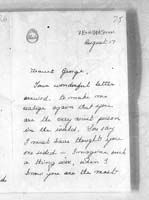 75
August 17
Dearest George,
Your wonderful letter
arrived. to made me
realize again that you
are the very nicest person
in the world. You say
I must have thought you
one sided — Imagine such
a thing ever, when I
know you are the most